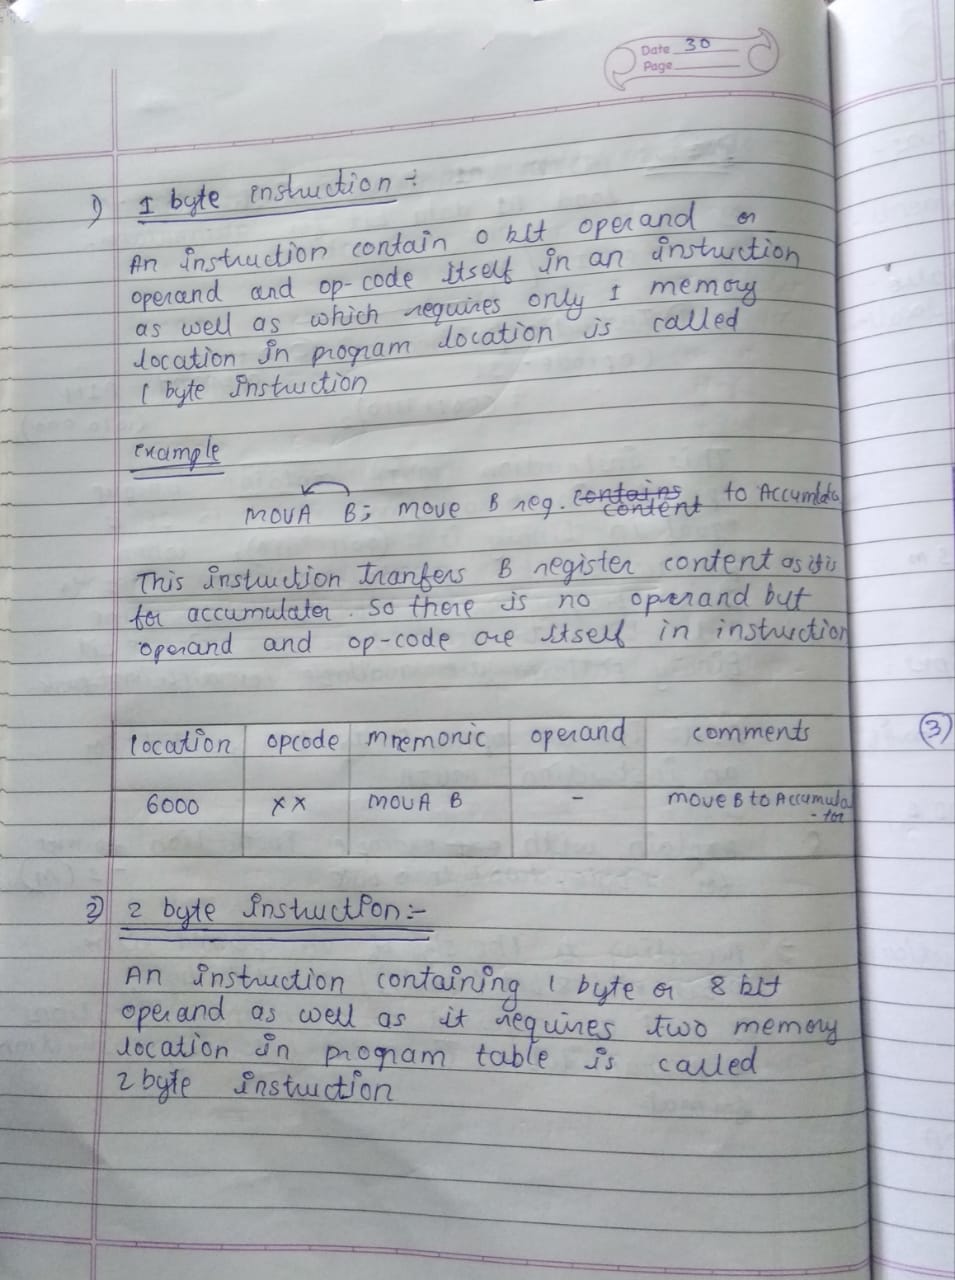 Date 30
Page
1) 1 byte instruction :-
An instruction contain 0 bit operand or
operand and op-code itself in an instruction
as well as which requires only 1 memory
location in program location is called
1 byte instruction
example
MOVA B; move B reg. contains to Accumlato
content
This instuction tranfers B register content as it is
for accumulater. so there is no operand but
operand and op-code are itself in instruction
location opcode mnemonic operand comments
6000 XX MOVA B - move B to Accumula
- tor
2) 2 byte instruction:-
An instruction containing 1 byte or 8 bit
operand as well as it requires two memory
location in program table is called
2 byte instruction
3)